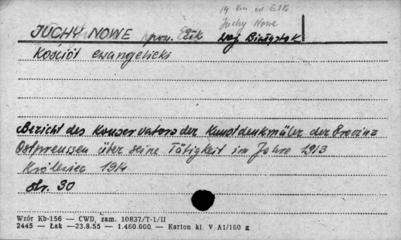 19 km od Ełk
Juchy Nowe
JUCHY NOWE pow. Ełk woj. Białystok
Kościół ewangelicki
Bericht des Konservators der Kunstdenkmäler der Provinz
Ostpreussen über seine Tätigkeit im Jahre 1913
Królewiec 1914
str. 30
Wzór Kb-156 — CWD, zam. 10837/T-1/II
2445 — Łak — 23.8.55 — 1.460.000. — Karton kl. V A1/160 g